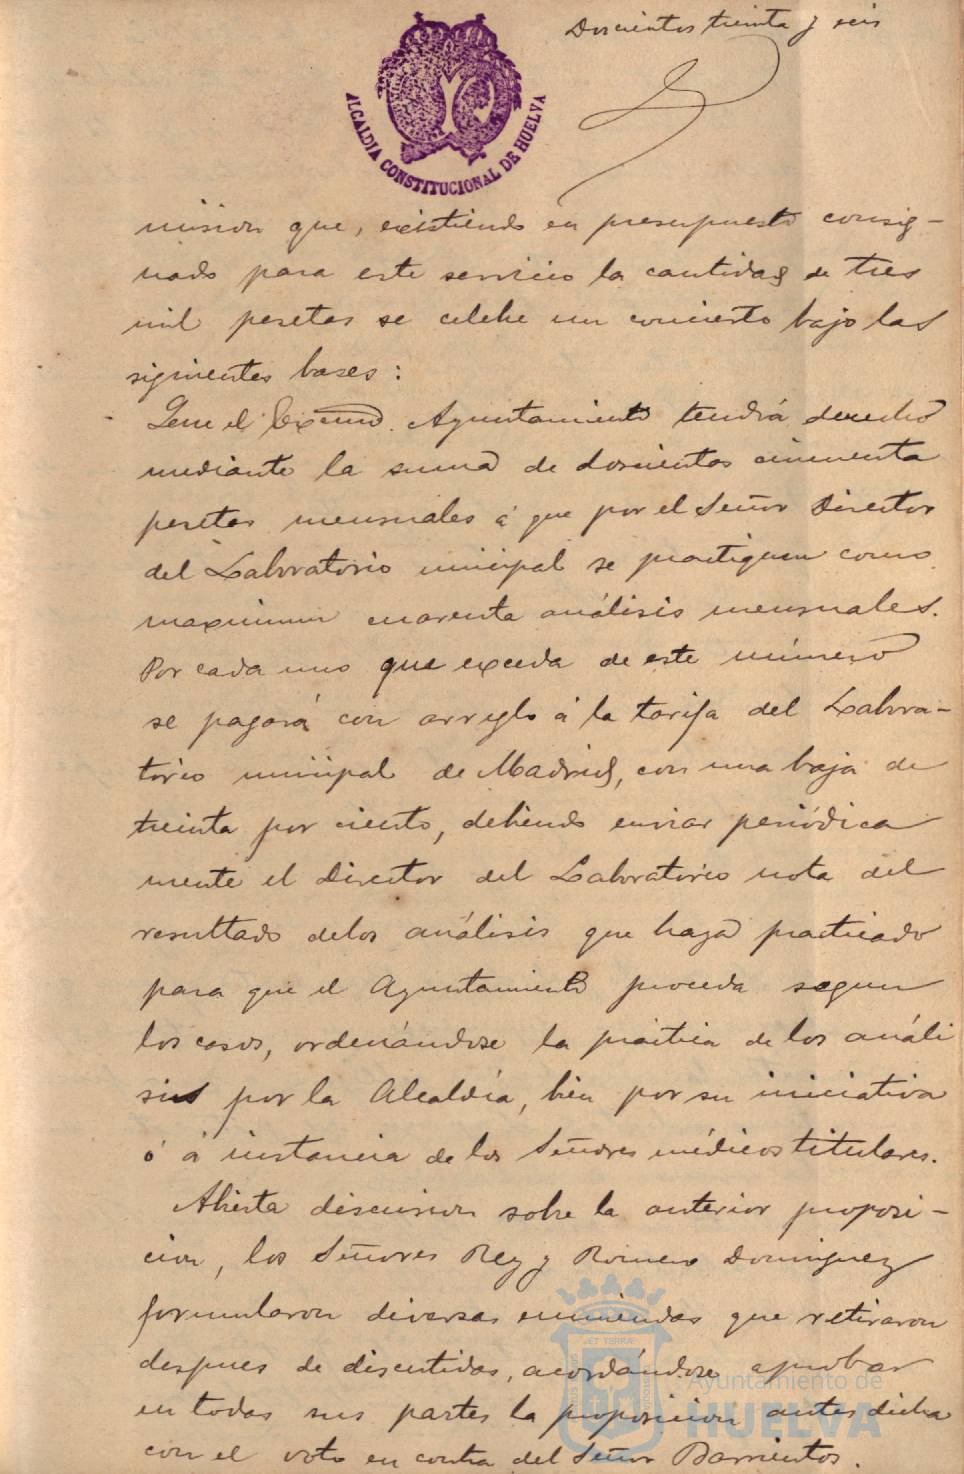 Doscientos treinta y seis
ALCALDIA CONSTITUCIONAL DE HUELVA
mision que, existiendo en presupuesto consig-
nado para este servicio la cantidad de tres
mil pesetas se celebre un concierto bajo las
siguientes bases:
Que el Excmo. Ayuntamiento tendrá derecho
mediante la suma de doscientas cincuenta
pesetas mensuales á que por el Señor Director
del Laboratorio municipal se practiquen como
maximum cuarenta análisis mensuales.
Por cada uno que exceda de este número
se pagará con arreglo á la tarifa del Labora-
torio municipal de Madrid, con una baja de
treinta por ciento, debiendo enviar periódica
mente el Director del Laboratorio nota del
resultado delos análisis que haya practicado
para que el Ayuntamiento proceda segun
los casos, ordenándose la práctica de los análi
sis por la Alcaldía, bien por su iniciativa
ó á instancia de los Señores médicos titulares.
Abierta discusion sobre la anterior proposi-
cion, los Señores Rey y Romero Dominguez
formularon diversas enmiendas que retiraron
despues de discutidas, acordándose aprobar
en todas sus partes la proposicion antes dicha
con el voto en contra del Señor Barrientos.
Ayuntamiento de
HUELVA